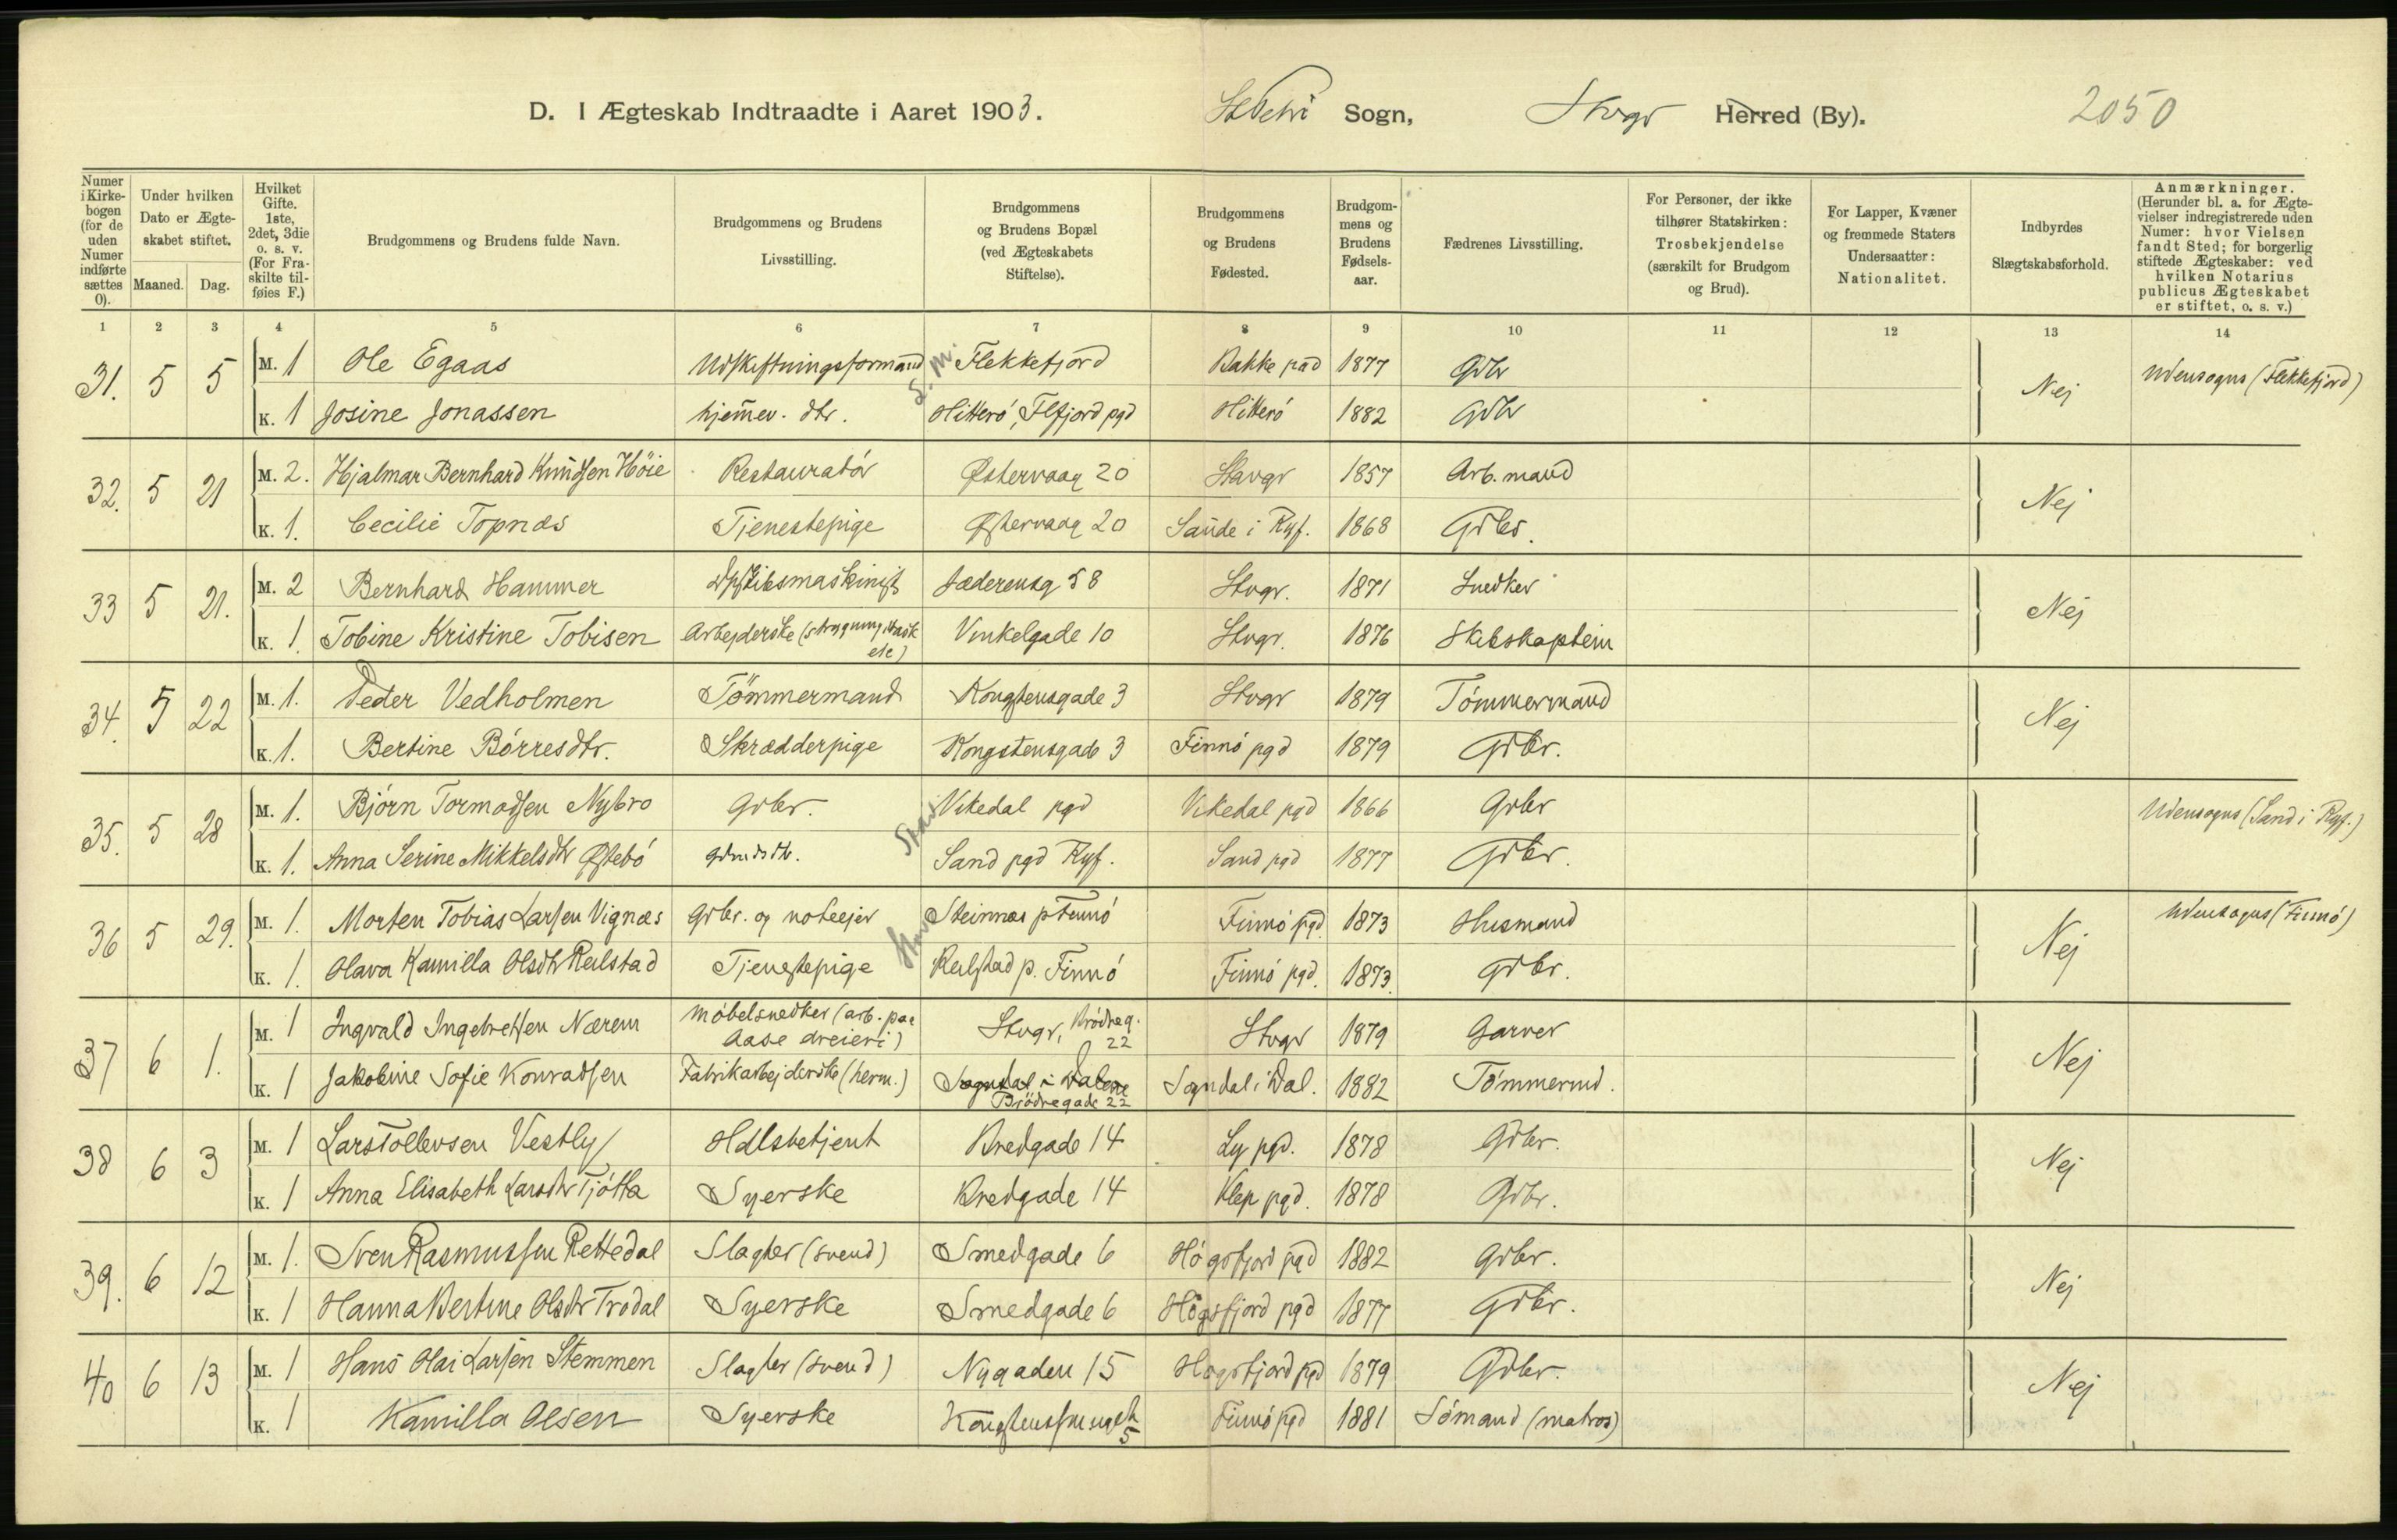 D. I Ægteskab Indtraadte i Aaret 1903. St Petri Sogn, Stvgr Herred (By). 2050
Numer i Kirkebogen (for de uden Numer indførte sættes 0).
Under hvilken Dato er Ægteskabet stiftet.
Maaned. Dag.
Hvilket Gifte. 1ste, 2det, 3die o. s. v. (For Fraskilte tilføies F.)
Brudgommens og Brudens fulde Navn.
Brudgommens og Brudens Livsstilling.
Brudgommens og Brudens Bopæl (ved Ægteskabets Stiftelse).
Brudgommens og Brudens Fødested.
Brudgommens og Brudens Fødselsaar.
Fædrenes Livsstilling.
For Personer, der ikke tilhører Statskirken: Trosbekjendelse (særskilt for Brudgom og Brud).
For Lapper, Kvæner og fremmede Staters Undersaatter: Nationalitet.
Indbyrdes Slægtskabsforhold.
Anmærkninger. (Herunder bl. a. for Ægtevielser indregistrerede uden Numer: hvor Vielsen fandt Sted; for borgerlig stiftede Ægteskaber: ved hvilken Notarius publicus Ægteskabet er stiftet, o. s. v.)
1 2 3 4 5 6 7 8 9 10 11 12 13 14
31. 5 5 M. 1 Ole Egaas Udskiftningsformand Flekkefjord Bakke pgd 1877 Gdbr Nej Udensogns (Flekkefjord)
K. 1 Josine Jonassen hjemmev. dtr. Hitterö, Flfjord pgd Hitterö 1882 Gdbr
32. 5 21 M. 2. Hjalmar Bernhard Knudsen Höie Restauratör Østervaag 20 Stavgr 1857 Arb.mand Nej
K. 1. Cecilie Topnæs Tjenestepige Østervaag 20 Saude i Ryf. 1868 Gdbr.
33 5 21. M. 2 Bernhard Hammer Dpskibsmaskinist Jæderensg 58 Stvgr. 1871 Snedker Nej
K. 1. Tobine Kristine Tobisen Arbejderske (strygning, vask etc) Vinkelgade 10 Stvgr. 1876 Skibskaptein
34. 5 22 M. 1. Peder Vedholmen Tömmermand Kongstensgade 3 Stvgr 1879 Tömmermand Nej
K. 1. Bertine Börresdtr. Skrædderpige Kongstensgade 3 Finnö pgd 1879 Gdbr.
35. 5 28 M. 1. Björn Tormodsen Nybro Gdbr. Vikedal pgd Vikedal pgd 1866 Gdbr Udensogns (Sand i Ryf.)
K. 1. Anna Serine Mikkelsdtr Østebö gdmdsdtr. Sand pgd Ryf. Sand pgd 1877 Gdbr.
36 5 29. M. 1. Morten Tobias Larsen Vignæs Gdbr. og noteejer Steinnæs p Finnö Finnö pgd. 1873 Husmand Nej Udensogns (Finnö)
K. 1. Olava Kamilla Olsdtr Reilstad Tjenestepige Reilstad p. Finnö Finnö pgd. 1873. Gdbr.
37 6 1. M. 1 Ingvald Ingebretsen Nærem Möbelsnedker (arb. paa Aase dreieri) Stvgr, Brödreg. 22 Stvgr 1879 Garver Nej
K. 1 Jakobine Sofie Konradsen Fabrikarbejderske (herm.) Sogndal i Dalene Brödregade 22 Sogndal i Dal. 1882 Tömmermd.
38 6 3 M. 1 Lars Tollevsen Vestly Hdlsbetjent Bredgade 14 Ly pgd. 1878 Gdbr. Nej
K. 1 Anna Elisabeth Larsdtr Tjötta Syerske Bredgade 14 Klep pgd. 1878 Gdbr.
39. 6 12 M. 1. Sven Rasmussen Rettedal Slagter (svend) Smedgade 6 Högsfjord pgd 1882 Gdbr. Nej
K. 1 Hanna Bertine Olsdtr Trodal Syerske Smedgade 6 Högsfjord pgd 1877 Gdbr.
40 6 13 M. 1 Hans Olai Larsen Stemmen Slagter (svend) Nygaden 15 Högsfjord pgd 1879 Gdbr. Nej
K. 1 Kamilla Olsen Syerske 5 Finnö pgd 1881 Sömand (matros)